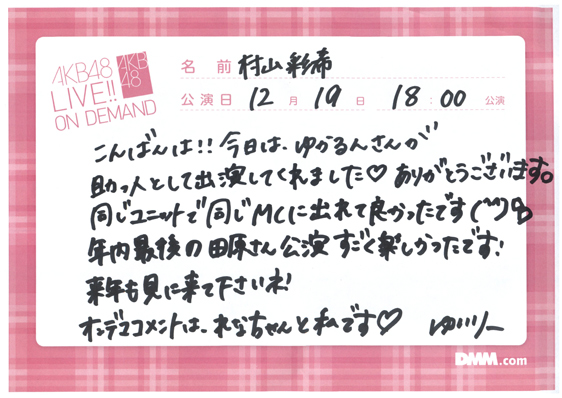 AKB48
LIVE!!
ON DEMAND
AKB
48
名前 村山彩希
公演日 12月19日 18:00公演
こんばんは!!今日は、ゆかるんさんが
助っ人として出演してくれました♡ありがとうございます。
同じユニットで同じMCに出れて良かったです
年内最後の田原さん公演すごく楽しかったです!
来年も見に来て下さいネ!
オンデマコメントは、れなちゃんと私です♡ ゆいりー
DMM.com